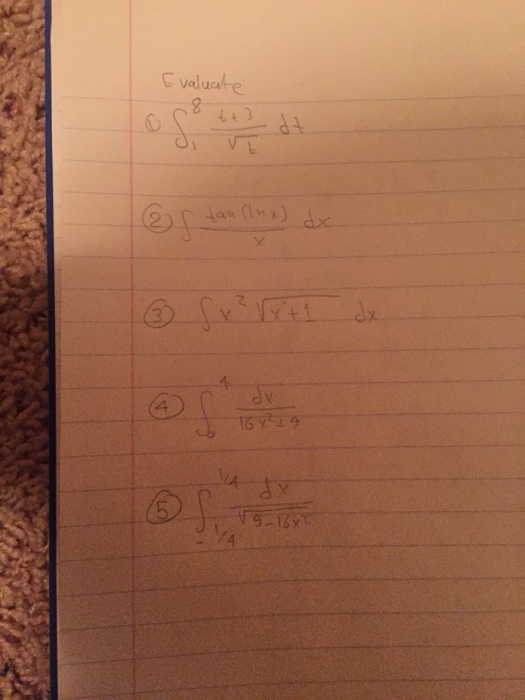 Evaluate
① ∫₁⁸ (t+3)/√t dt
② ∫ tan(ln x)/x dx
③ ∫ x² √(x+1) dx
④ ∫₀⁴ dx/(16x²+9)
⑤ ∫₋₁/₄^1/4 dx/√(9-16x²)